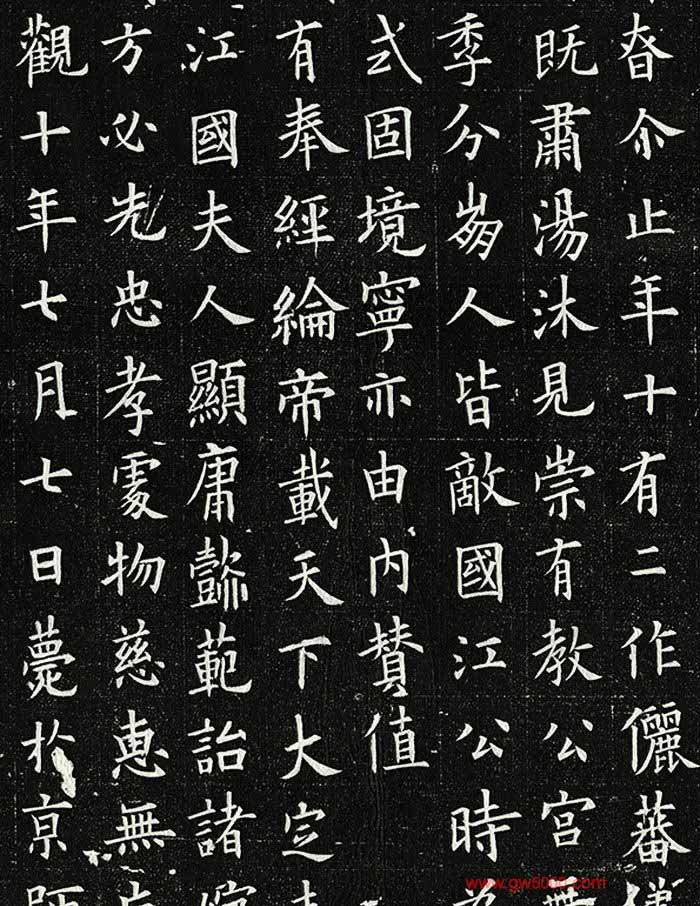 春介止年十有二作儷蕃
既肅湯沐見崇有教公宮無
季分崩人皆敵國江公時
式固境寧亦由內贊值
有奉經綸帝載天下大定
江國夫人顯庸懿範詒諸
方必先忠孝處物慈惠無
觀十年七月七日薨於京師
www.gw5000.com